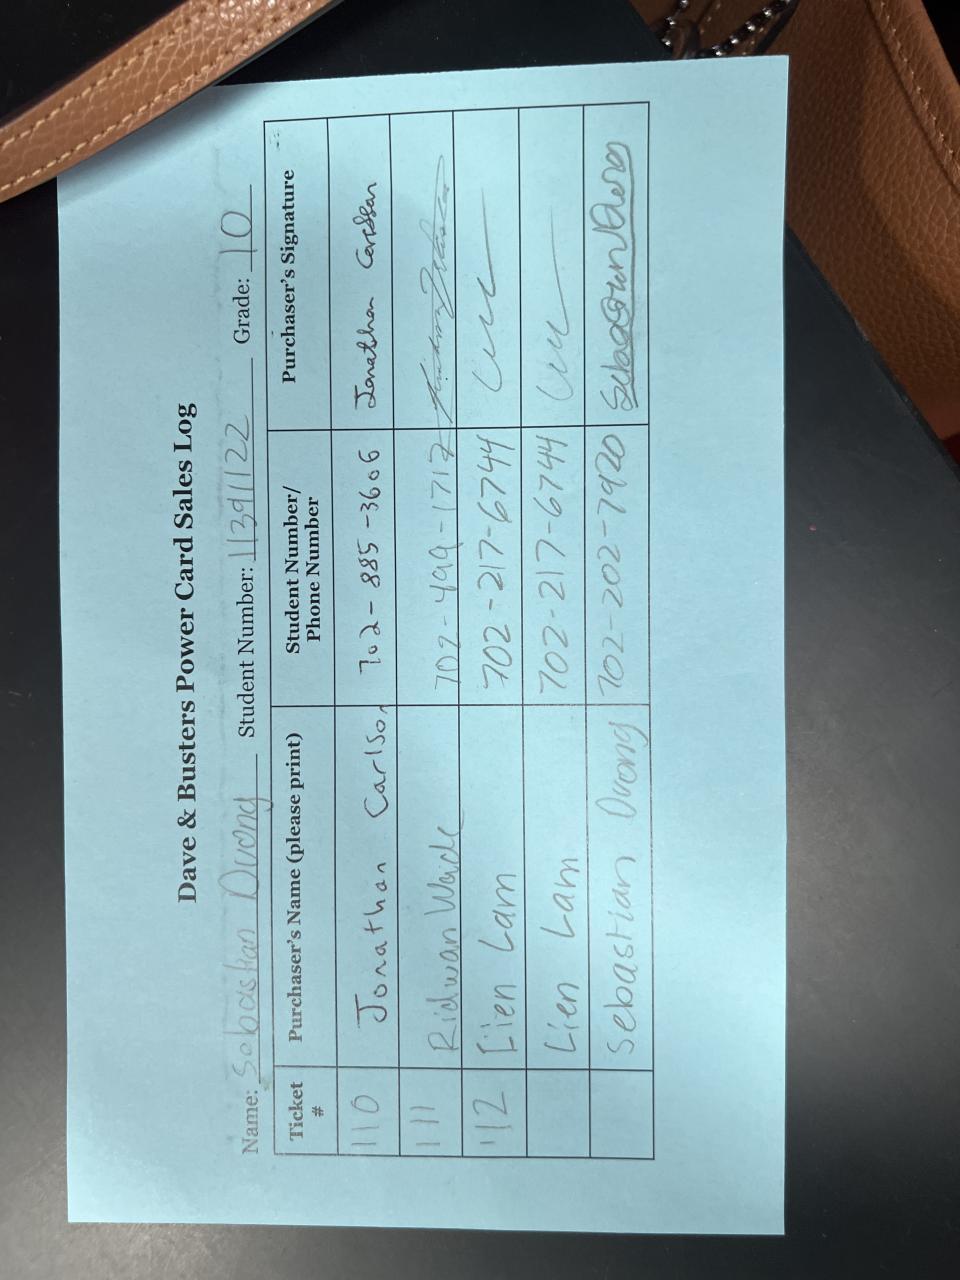 Dave & Busters Power Card Sales Log
Name: Sebastian Duong Student Number: 11391122 Grade: 10
Ticket # Purchaser's Name (please print) Student Number/ Phone Number Purchaser's Signature
110 Jonathan Carlson 702-885-3606 Jonathan Carlson
111 Ridwan 702-499-1717
112 Lien Lam 702-217-6744
Lien Lam 702-217-6744
Sebastian Duong 702-202-7920